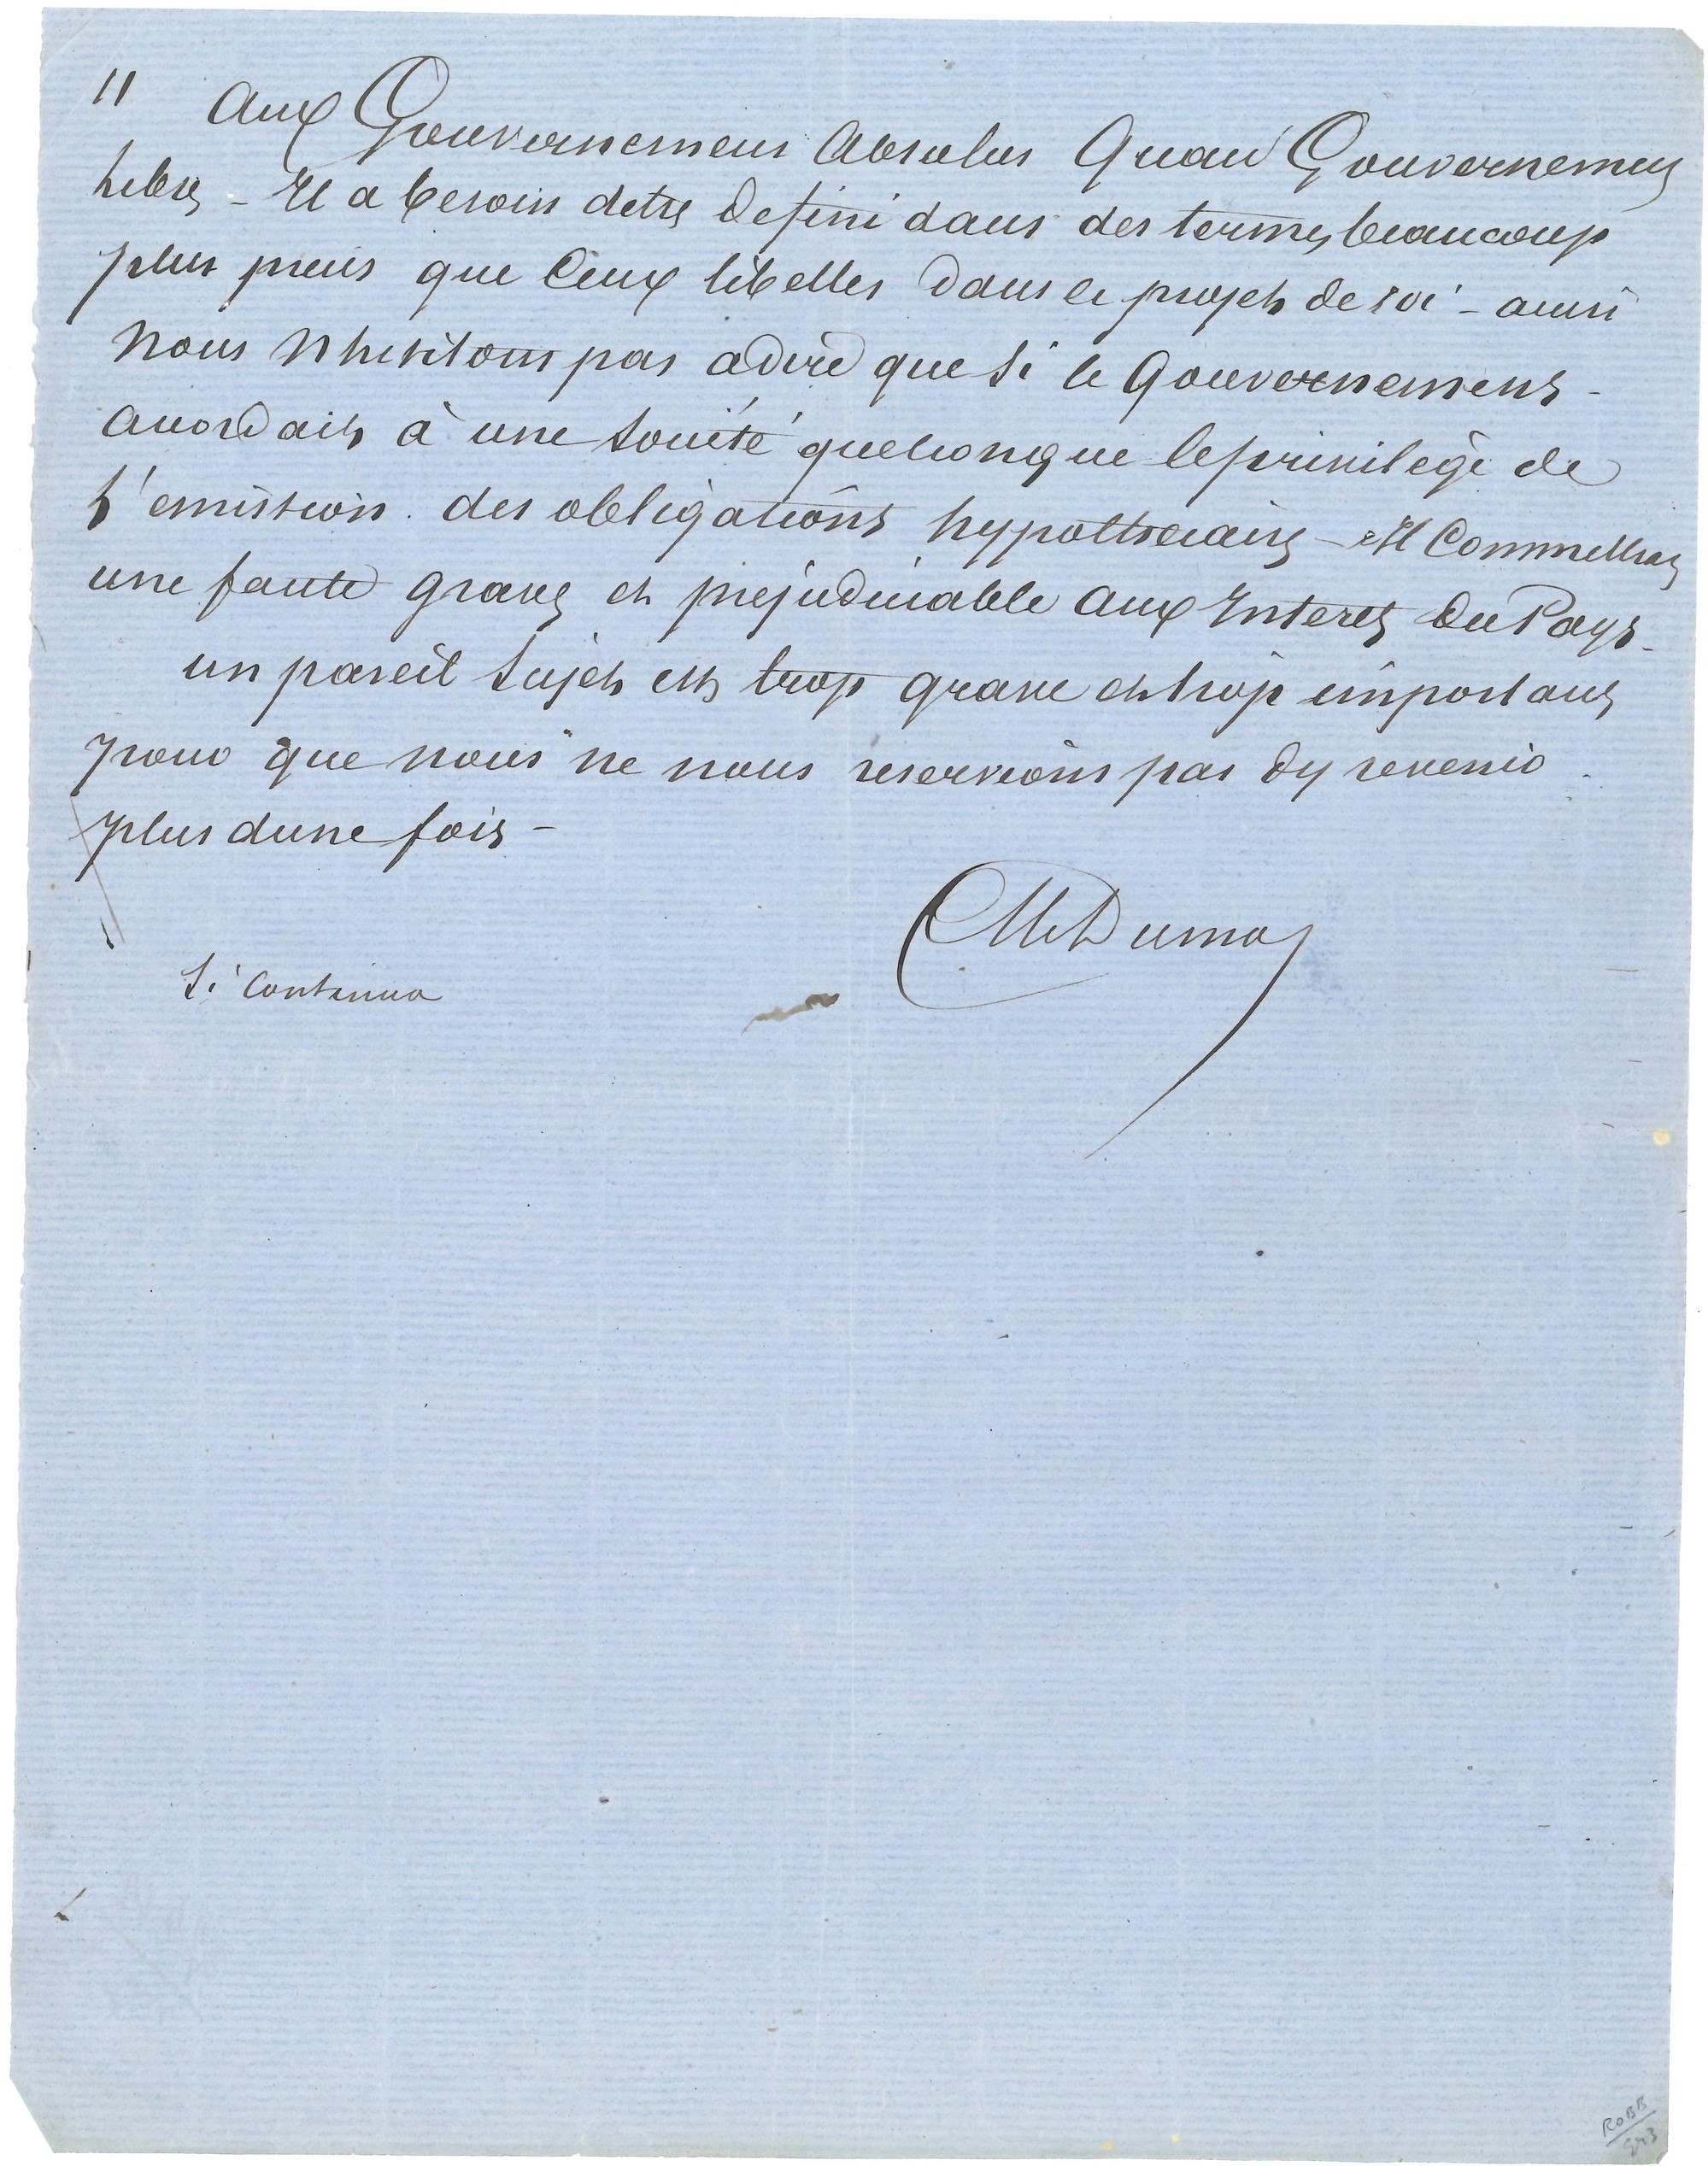 11 Aux Gouvernemens Absolus Quau Gouvernemens
libres - Il a besoin detre defini dans des termes beaucoup
plus precis que Ceux libelles dans le projet de loi - aussi
nous nhesitons pas a dire que si le Gouvernement -
accordait à une société quelconque le privilège de
l'emission des obligations hypothecaires - Il Commettrait
une faute grave et prejudiciable aux Interets du Pays -
un pareil sujet est trop grave et trop important
pour que nous ne nous reservions pas dy revenir
plus dune fois -
Alex Dumas
Si continua
ROBB